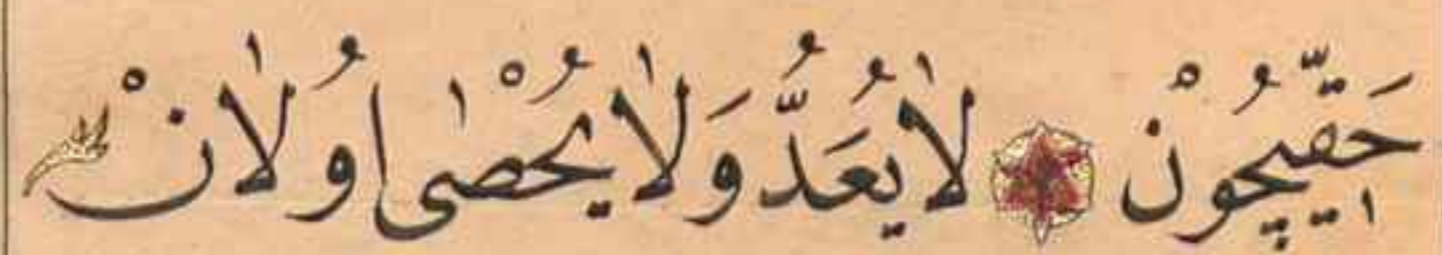 حَقّٖيچُونْ ۞ لاٰ يُعَدُّ وَلاٰ يُحْصٰى اُولاٰنْ